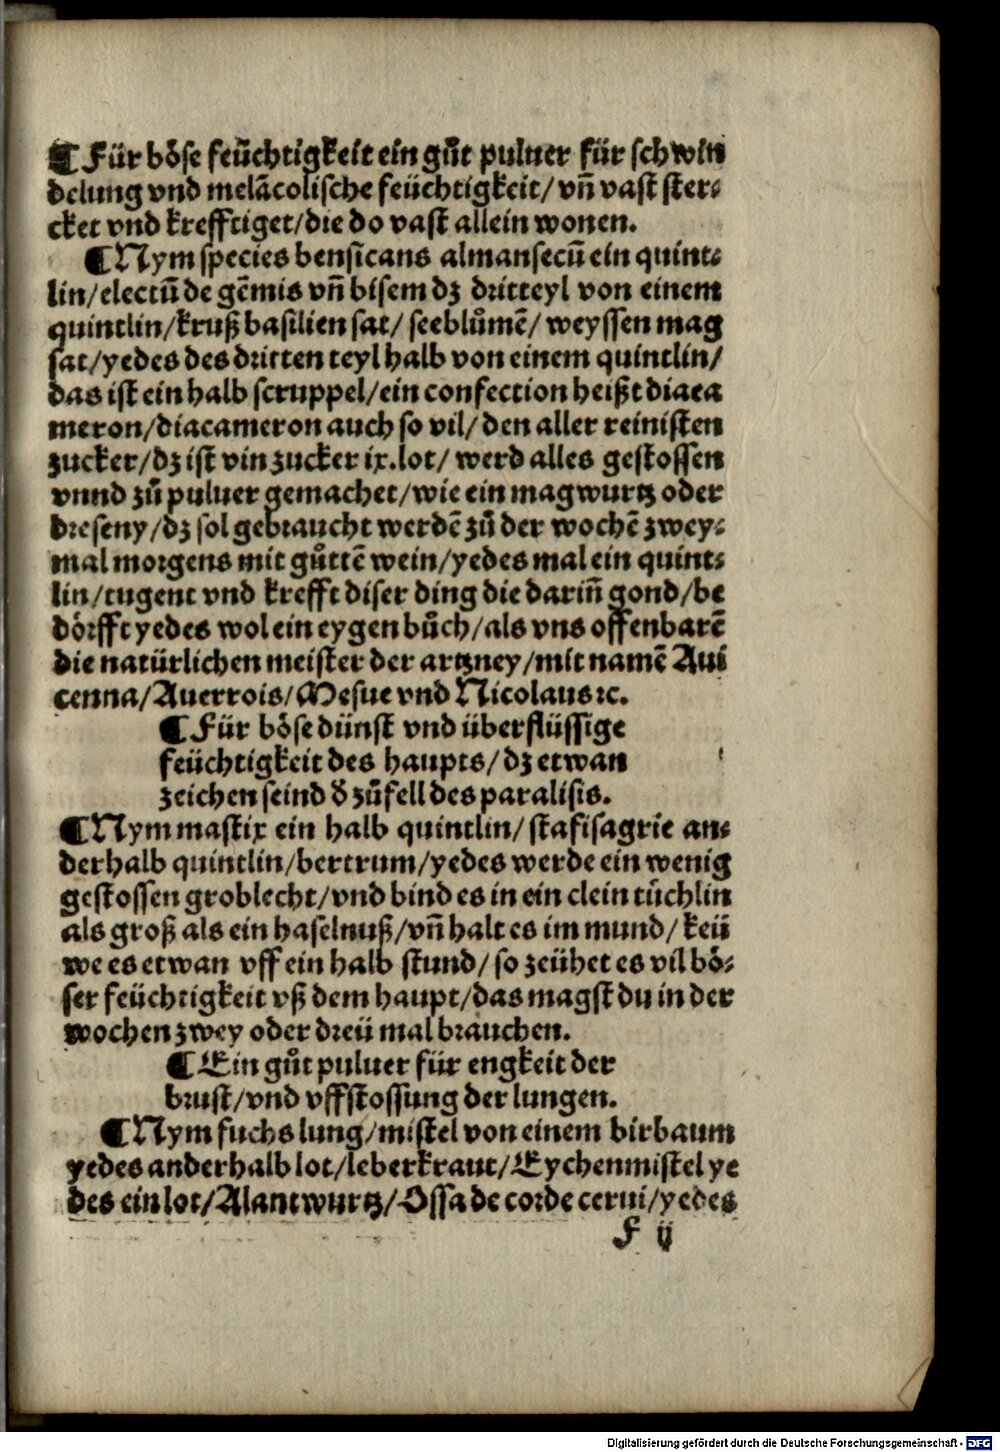 ¶Für bo̊se feu̎chtigkeit ein gůt puluer für schwin
delung vnd melācolische feüchtigkeit/ vn̄ vast ster⸗
cket vnd krefftiget/die do vast allein wonen.
¶Nym species bensicans almansecū ein quint⸗
lin/electū de gēmis vn̄ bisem dz dritteyl von einem
quintlin/kruß basilien sat/ seeblůmē/ weyssen mag
sat/yedes des dritten teyl halb von einem quintlin/
das ist ein halb scruppel/ein confection heißt diaca
meron/diacameron auch so vil/ den aller reinisten
zucker/dz ist vin zucker ix.lot/ werd alles gestossen
vnnd zů puluer gemachet/wie ein magwurtz oder
dreseny/dz sol gebraucht werdē zů der wochē zwey⸗
mal morgens mit gůttē wein/yedes mal ein quint⸗
lin/tugent vnd krefft diser ding die darin̄ gond/be
do̊rfft yedes wol ein eygen bůch/als vns offenbarē
die natürlichen meister der artzney/mit namē Aui
cenna/Auerrois/Mesue vnd Nicolaus ꝛc.
¶Für bo̊se dünst vnd überflüssige
feüchtigkeit des haupts/ dz etwan
zeichen seind d̕ zůfell des paralisis.
¶Nym mastix ein halb quintlin/ stafisagrie an⸗
derhalb quintlin/bertrum/yedes werde ein wenig
gestossen groblecht/vnd bind es in ein clein tu̎chlin
als groß als ein haselnuß/vn̄ halt es im mund/ keü
we es etwan vff ein halb stund/ so zeühet es vil bo̊⸗
ser feüchtigkeit vß dem haupt/das magst du in der
wochen zwey oder dreü mal brauchen.
¶Ein gůt puluer für engkeit der
brust/vnd vffstossung der lungen.
¶Nym fuchs lung/mistel von einem birbaum
yedes anderhalb lot/leberkraut/Eychenmistel ye
des ein lot/Alantwurtz/Ossa de corde cerui/yedes
F ij
Digitalisierung gefördert durch die Deutsche Forschungsgemeinschaft - DFG